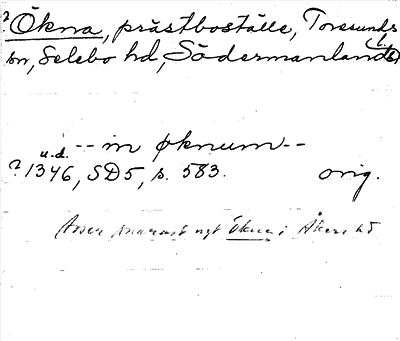 ? Ökna, prästboställe, Toresunds
sn, Selebo hd, Södermanland
-- in øknum --
u.d.
? 1346, SD5, s. 583. orig.
snarast nytt Ökna i Åkers hd